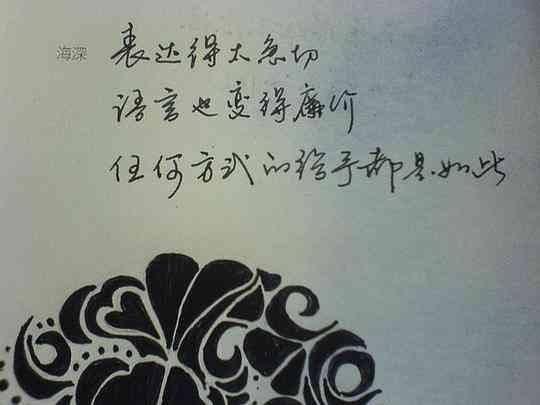 海深
表达得太急切
语言也变得廉价
任何方式的给予都是如此